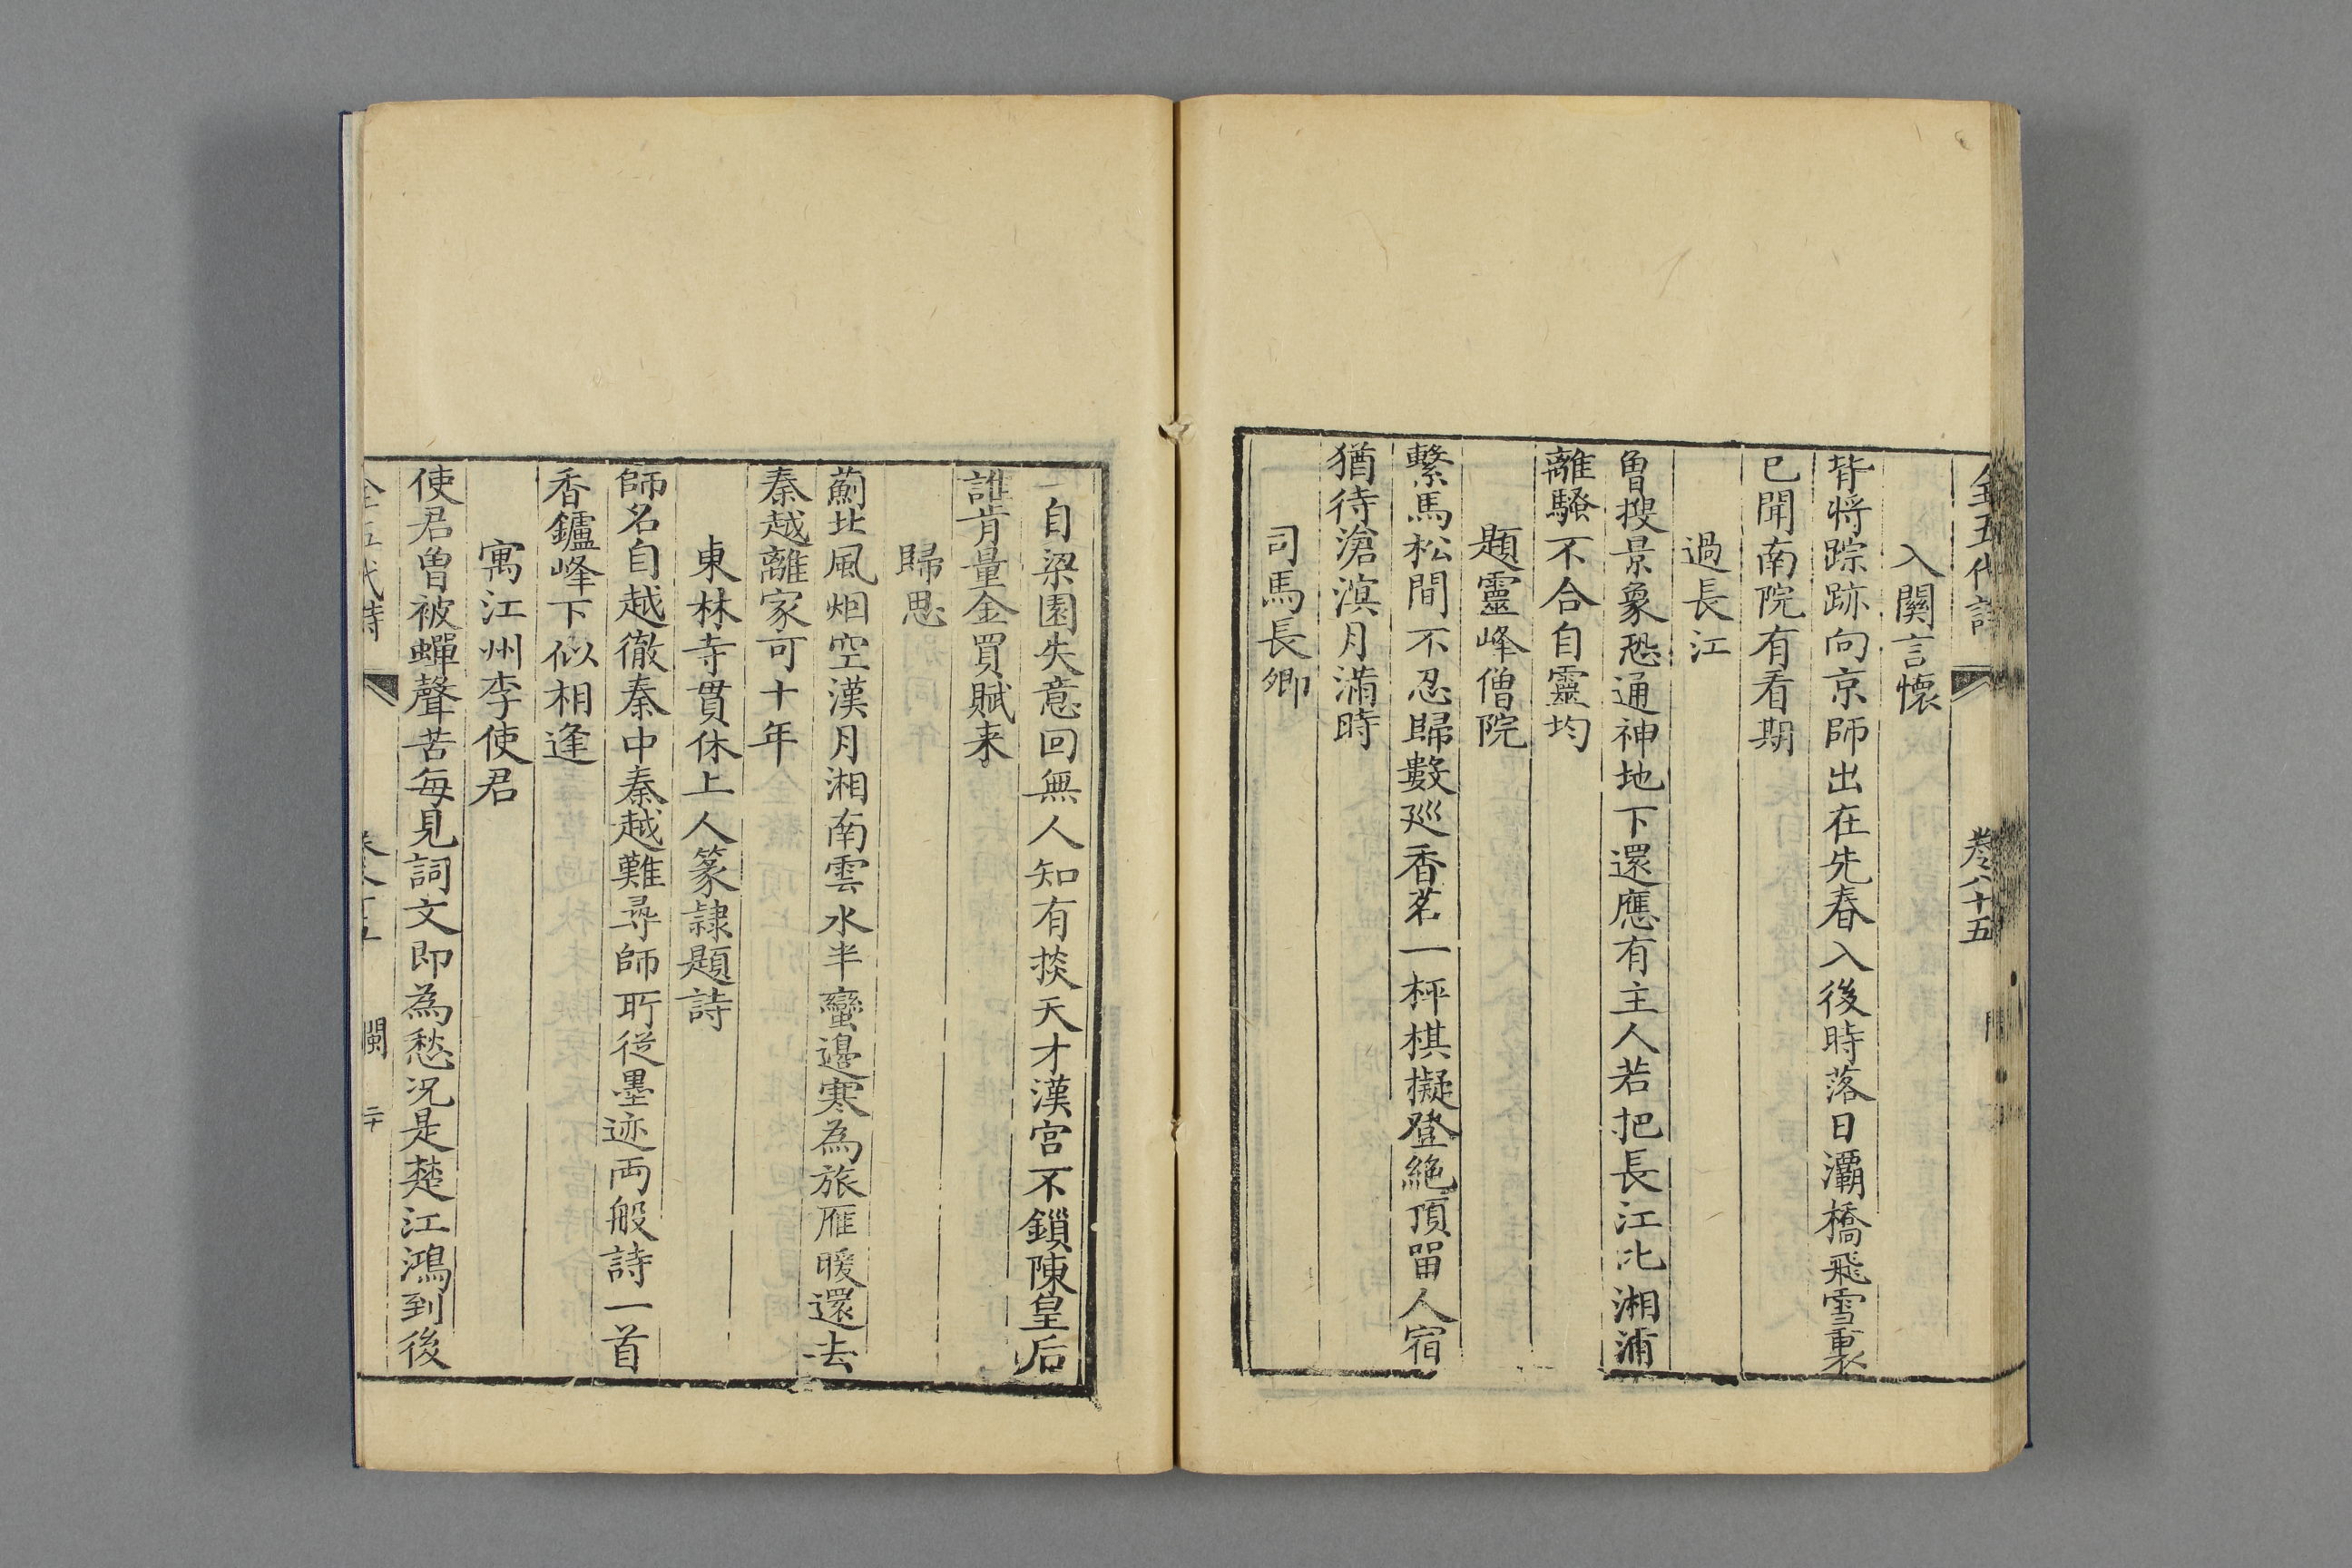 全五代詩 卷之八十五
入關言懷
背將踪跡向京師出在先春入後時落日灞橋飛雪裏
已聞南院有看期
過長江
曾搜景象恐通神地下還應有主人若把長江比湘浦
離騷不合自靈均
題靈峰僧院
繫馬松間不忍歸數巡香茗一枰棋擬登絶頂畱人宿
猶待滄溟月滿時
司馬長卿
一自梁園失意回無人知有掞天才漢宮不鎖陳皇后
誰肯量金買賦来
歸思
薊北風烟空漢月湘南雲水半蠻邊寒為旅雁暖還去
秦越離家可十年
東林寺貫休上人篆隸題詩
師名自越徹秦中秦越難尋師所從墨迹両般詩一首
香鑪峰下似相逢
寓江州李使君
使君曾被蟬聲苦每見詞文即為愁況是楚江鴻到後
全五代詩 閩 二十